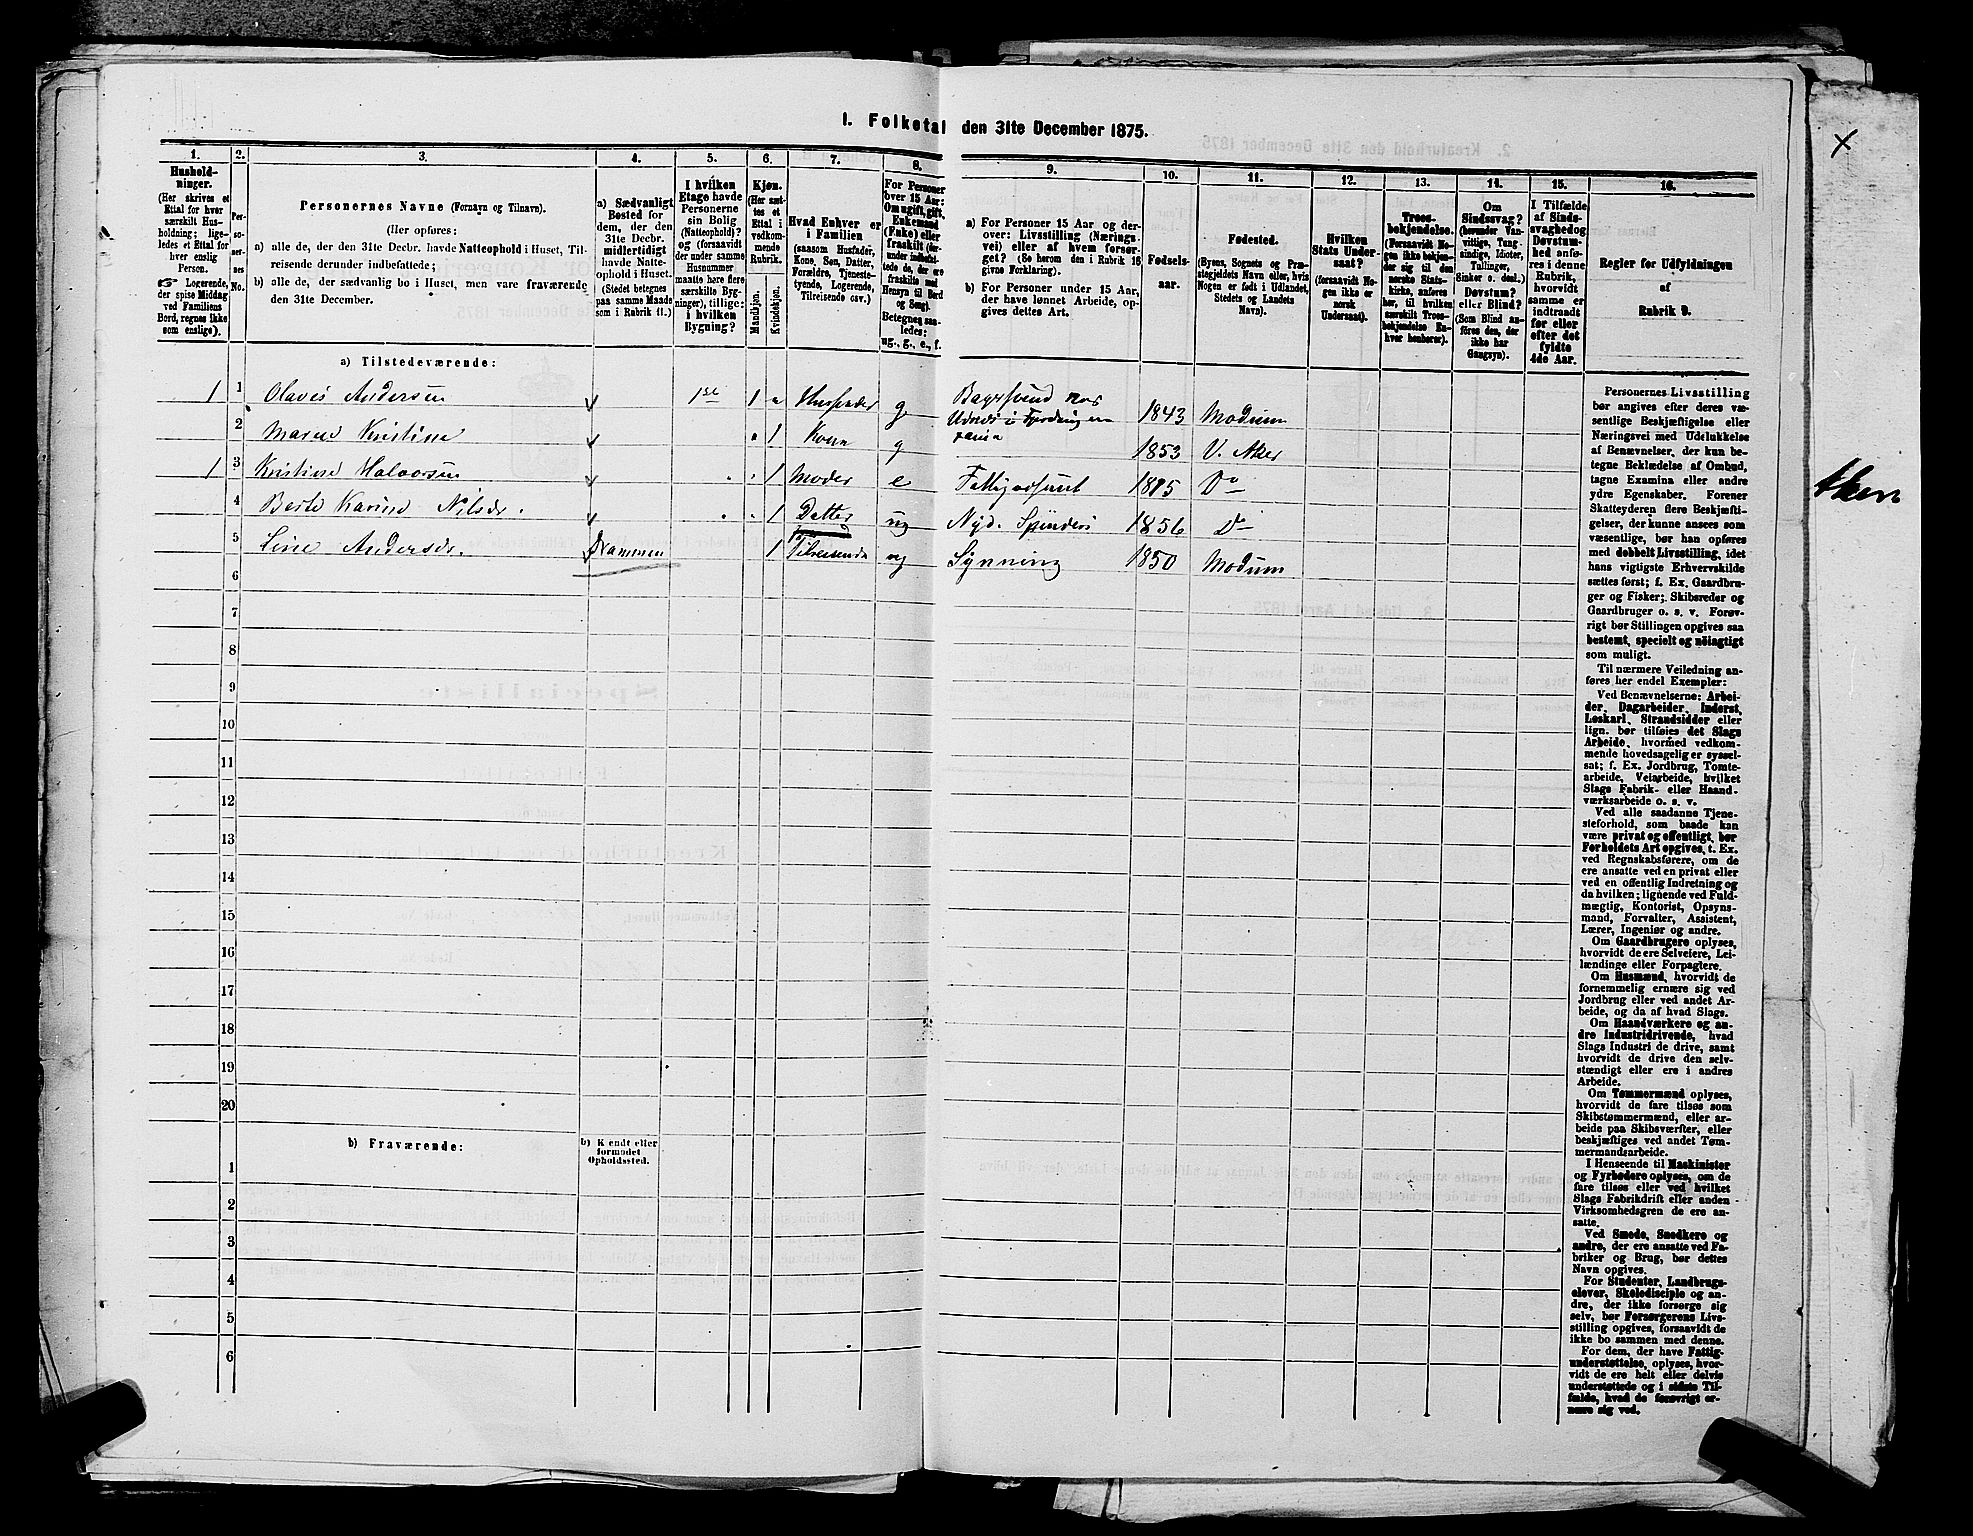 I. Folketal den 31te December 1875.
1.
Hushold-
ninger.
(Her skrives et
Ettal for hver
særskilt Hus-
holdning; lige-
ledes et Ettal for
hver enslig
Person.
☞ Logerende,
der spise Middag
ved Familiens
Bord, regnes ikke
som enslige).
2.
Per-
soner-
nes
No.
3.
Personernes Navne (Fornavn og Tilnavn).
(Her opføres:
a) alle de, der den 31te Decbr. havde Natteophold i Huset, Til-
reisende derunder indbefattede;
b) alle de, der sædvanlig bo i Huset, men vare fraværende
den 31te December.
4.
a) Sædvanligt
Bosted for
dem, der den
31te Decbr.
midlertidigt
havde Natte-
ophold i Huset.
(Stedet betegnes
paa samme Maade
som i Rubrik 11.)
5.
I hvilken
Etage havde
Personerne
sin Bolig
(Natteophold)?
og (forsaavidt
der under samme
Husnummer
maatte høre flere
særskilte Byg-
ninger), tillige:
i hvilken
Bygning?
6.
Kjøn.
(Her sæt-
tes et
Ettal i
vedkom-
mende
Rubrik.
Mandkjøn.
Kvindekjøn.
7.
Hvad Enhver er
i Familien
(saasom Husfader,
Kone, Søn, Datter,
Forældre, Tjeneste-
tyende, Logerende,
Tilreisende osv.)
8.
For Personer
over 15 Aar:
Om ugift, gift,
Enkemand
(Enke) eller
fraskilt (der-
under indbefat-
tede de, der ere
fraskilte med
Hensyn til Bord
og Seng).
Betegnes saa-
ledes:
ug., g., e., f.
9.
a) For Personer 15 Aar og der-
over: Livsstilling (Nærings-
vei) eller af hvem forsør-
get? (Se herom den i Rubrik 16
givne Forklaring).
b) For Personer under 15 Aar,
der have lønnet Arbeide, op-
gives dettes Art.
10.
Fødsels-
aar.
11.
Fødested.
(Byens, Sognets og Præ-
stegjeldets Navn eller, hvis
Nogen er født i Udlandet,
Stedets og Landets
Navn).
12.
Hvilken
Stats Under-
saat?
(forsaavidt No-
gen ikke er
norsk
Undersaat).
13.
Troes-
bekjendelse.
(Forsaavidt No-
gen ikke bekjen-
der sig til den
norske Stats-
kirke, anføres
her, til hvilken
særskilt Troes-
bekjendelse En-
hver henhører).
14.
Om
Sindssvag?
(herunder Van-
vittige, Tung-
sindige, Idioter,
Tullinger,
Sinker o. desl.)
Døvstum?
eller Blind?
(Som Blind an-
føres den, der
ikke har
Gangsyn).
15.
I Tilfælde
af Sinds-
svaghed og
Døvstum-
hed anfø-
res i denne
Rubrik,
hvorvidt
samme er
indtraadt
før eller
efter det
fyldte
4de Aar.
16.
Regler for Udfyldningen
af
Rubrik 9.
a) Tilstedeværende:
1 1 Olaves Andersen 1ste 1 Husfader g 1843 Modum
2 Maren Kristine 1 Kone g 1853 V. Aker
1 3 Kristine Halvorsen 1 Moder e Fattigvæsenet 1815 Do
4 Berte Karine Nilsdr. 1 Datter ug 1856 Do
5 Line Andersdr. Drammen 1 Tilreisende ug Synning 1850 Modum
6
7
8
9
10
11
12
13
14
15
16
17
18
19
20
b) Fraværende:
b) Kendt eller
formodet
Opholdssted.
1
2
3
4
5
6
Personernes Livsstilling
bør angives efter deres væ-
sentlige Beskjæftigelse eller
Næringsvei med Udelukkelse
af Benævnelser, der kun be-
tegne Beklædelse af Ombud,
tagne Examina eller andre
ydre Egenskaber. Forener
Skatteyderen flere Beskjæfti-
gelser, der kunne ansees som
væsentlige, bør han opføres
med dobbelt Livsstilling, idet
hans vigtigste Erhvervskilde
sættes først; f. Ex. Gaardbru-
ger og Fisker; Skibsreder og
Gaardbruger o. s. v. Forøv-
rigt bør Stillingen opgives saa
bestemt, specielt og nøiagtigt
som muligt.
Til nærmere Veiledning an-
føres her endel Exempler:
Ved Benævnelserne: Arbei-
der, Dagarbeider, Inderst,
Løskarl, Strandsidder eller
lign. bør tilføies det Slags
Arbeide, hvormed vedkom-
mende hovedsagelig er syssel-
sat; f. Ex. Jordbrug, Tomte-
arbeide, Veiarbeide, hvilket
Slags Fabrik- eller Haand-
værksarbeide o. s. v.
Ved alle saadanne Tjene-
steforhold, som baade kan
være privat og offentligt, bør
Forholdets Art opgives, t. Ex.
ved Regnskabsførere, om de
ere ansatte ved en privat eller
ved en offentlig Indretning og
da hvilken; lignende ved Fuld-
mægtig, Kontorist, Opsyns-
mand, Forvalter, Assistent,
Lærer, Ingeniør og andre.
Om Gaardbrugere oplyses,
hvorvidt de ere Selveiere, Lei-
lændinge eller Forpagtere.
Om Husmænd, hvorvidt de
fornemmelig ernære sig ved
Jordbrug eller ved andet Ar-
beide, og da af hvad Slags.
Om Haandværkere og an-
dre Industridrivende, hvad
Slags Industri de drive, samt
hvorvidt de drive den selv-
stændigt eller ere i andres
Arbeide.
Om Tømmermænd oplyses,
hvorvidt de fare tilsøs som
Skibstømmermænd, eller ar-
beide paa Skibsværfter, eller
beskjæftiges ved andet Tøm-
mermandsarbeide.
I Henseende til Maskinister
og Fyrbødere oplyses, om de
fare tilsøs eller ved hvilket
Slags Fabrikdrift eller anden
Virksomhedsgren de ere an-
satte.
Ved Smede, Snedkere og
andre, der ere ansatte ved Fa-
briker og Brug, bør dettes
Navn opgives.
For Studenter, Landbrugs-
elever, Skoledisciple og an-
dre, der ikke forsørge sig
selv, bør Forsørgerens Livs-
stilling opgives, forsaavidt de
ikke bo sammen med denne.
For dem, der have Fattig-
understøttelse, oplyses, hvor-
vidt de ere helt eller delvis
understøttede og i sidste Til-
fælde, hvad de forøvrigt er-
nære sig ved.